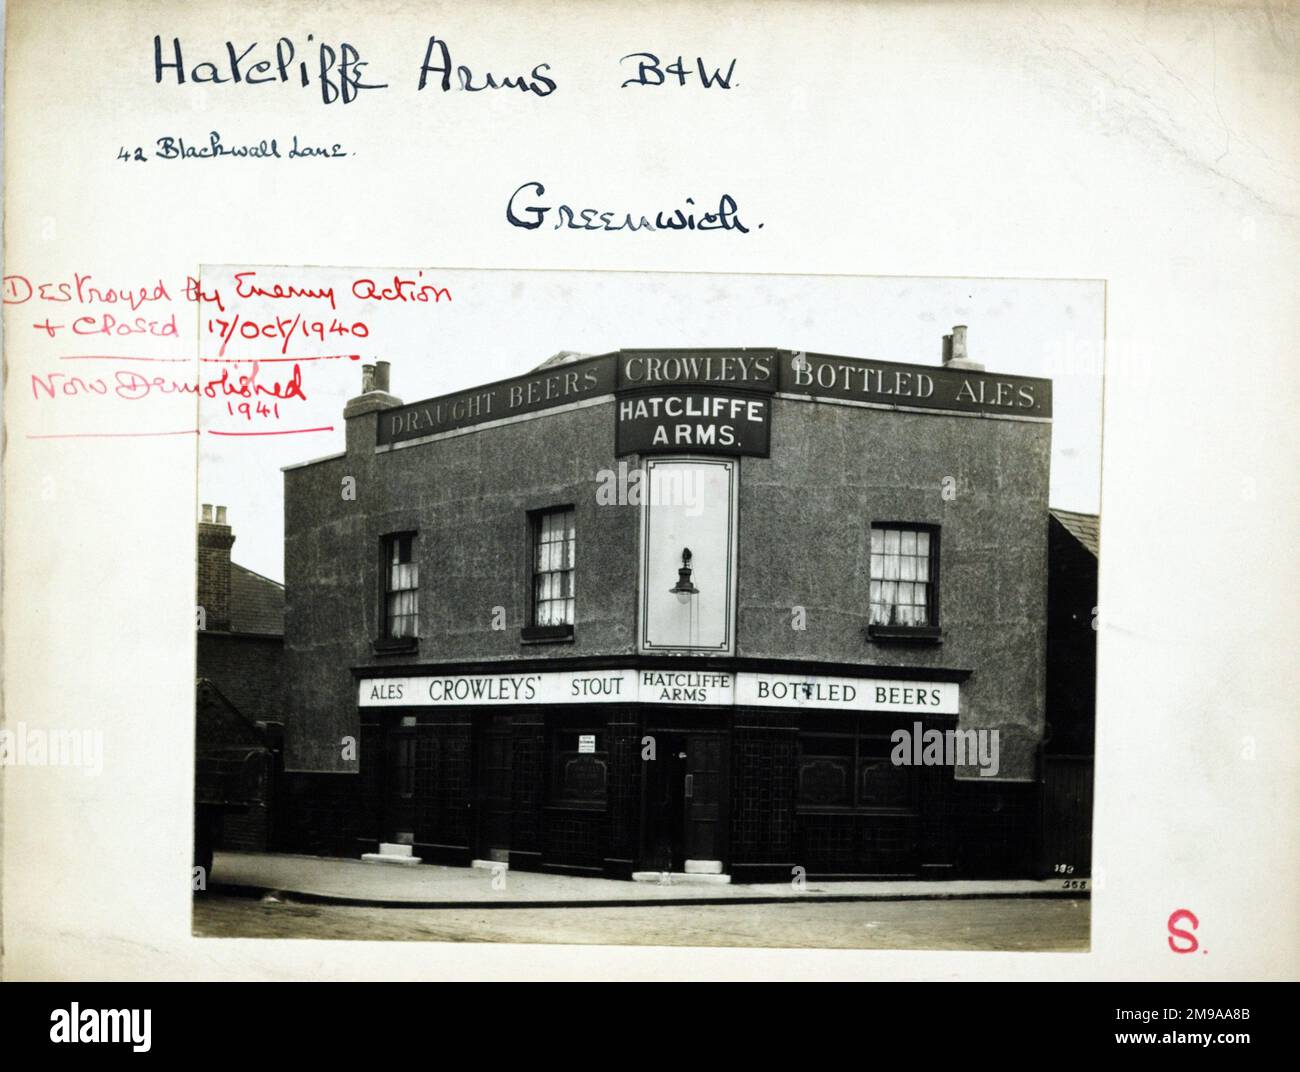 Hatcliffe Arms B+W.
42 Blackwall Lane.
Greenwich.
Destroyed by Enemy Action
+ Closed 17/Oct/1940
Now Demolished
1941
DRAUGHT BEERS CROWLEYS' BOTTLED ALES.
HATCLIFFE
ARMS.
ALES CROWLEYS' STOUT HATCLIFFE
ARMS BOTTLED BEERS
S.
alamy
Image ID: 2M9AA8B
www.alamy.com